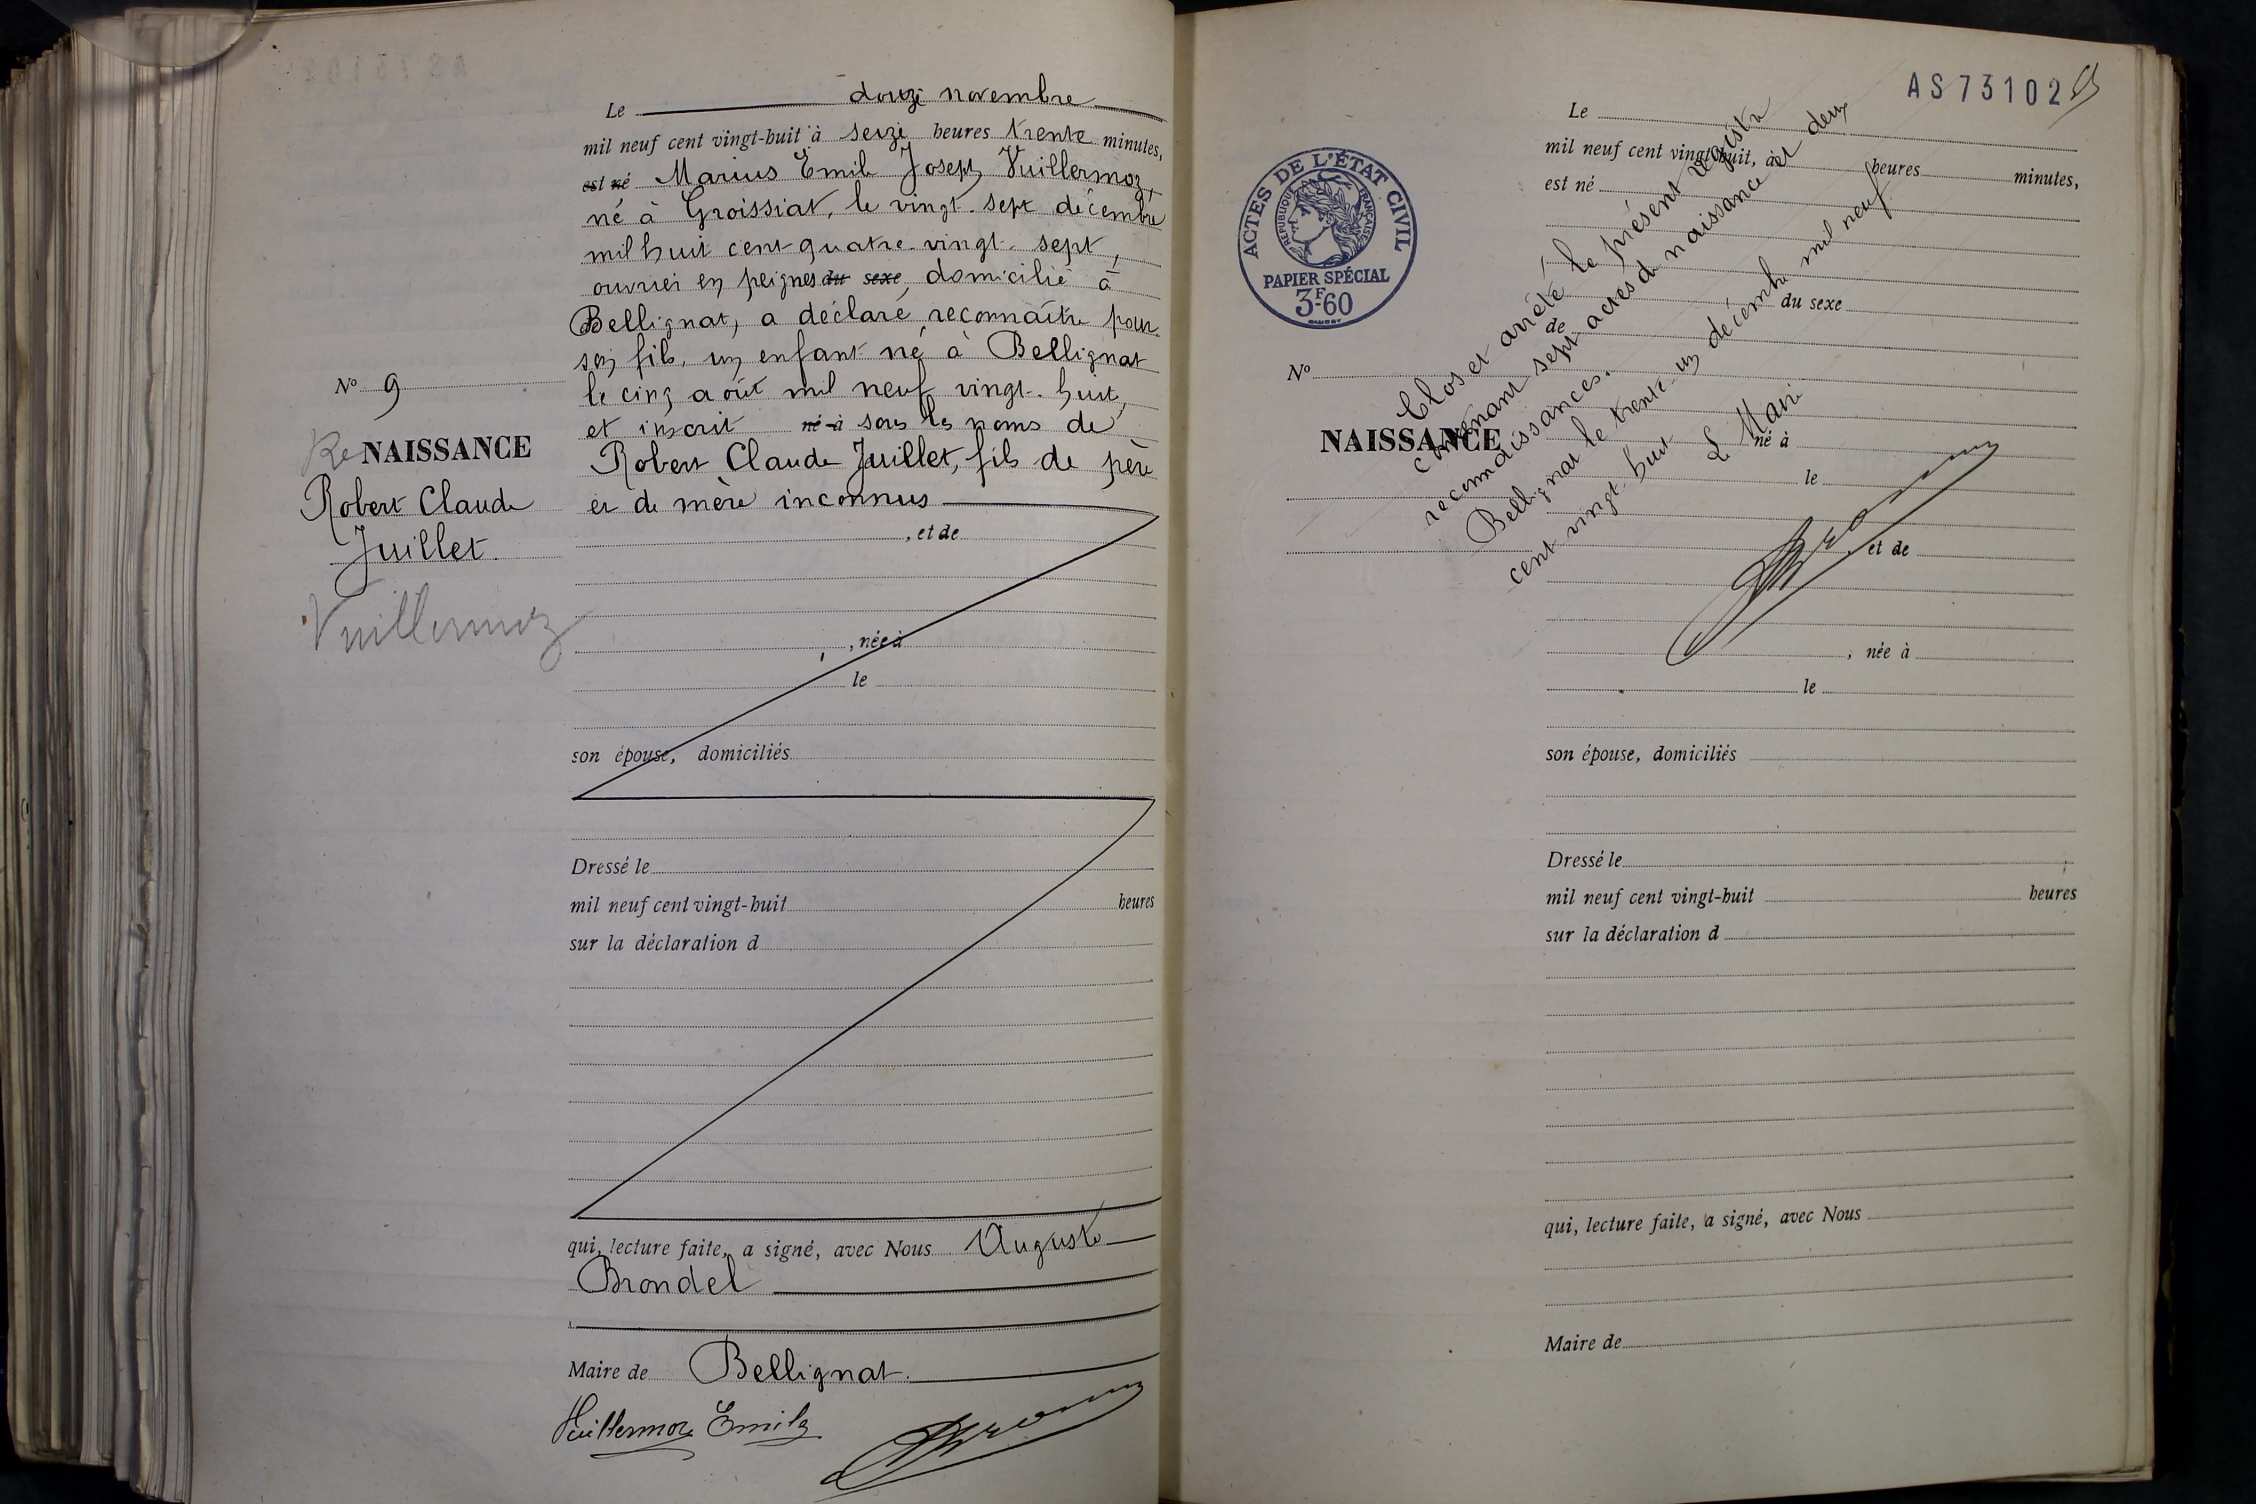 Le douze novembre
mil neuf cent vingt-huit à seize heures trente minutes,
est né Marius Emile Joseph Vuillermoz,
né à Groissiat, le vingt-sept décembre
mil huit cent quatre-vingt-sept,
ouvrier en peignes du sexe, domicilié à
Bellignat, a déclaré reconnaître pour
son fils, un enfant né à Bellignat
le cinq août mil neuf vingt-huit,
et inscrit né à sous les noms de
Robert Claude Juillet, fils de père
et de mère inconnus
N° 9
Re NAISSANCE
Robert Claude
Juillet
Vuillermoz
, et de
, née à
le
son épouse, domiciliés
Dressé le
mil neuf cent vingt-huit heures
sur la déclaration d
qui, lecture faite, a signé, avec Nous Auguste
Brondel
Maire de Bellignat.
Vuillermoz Emile
AS73102
ACTES DE L'ÉTAT CIVIL
RÉPUBLIQUE FRANÇAISE
PAPIER SPÉCIAL
3F-60
Le
mil neuf cent vingt-huit, à heures minutes,
est né
du sexe
de
N°
NAISSANCE
né à
le
et de
, née à
le
son épouse, domiciliés
Dressé le
mil neuf cent vingt-huit heures
sur la déclaration d
qui, lecture faite, a signé, avec Nous
Maire de
Clos et arrêté le présent registre
contenant sept actes de naissance et deux
reconnaissances.
Bellignat le trente-un décembre mil neuf
cent vingt-huit
Le Maire